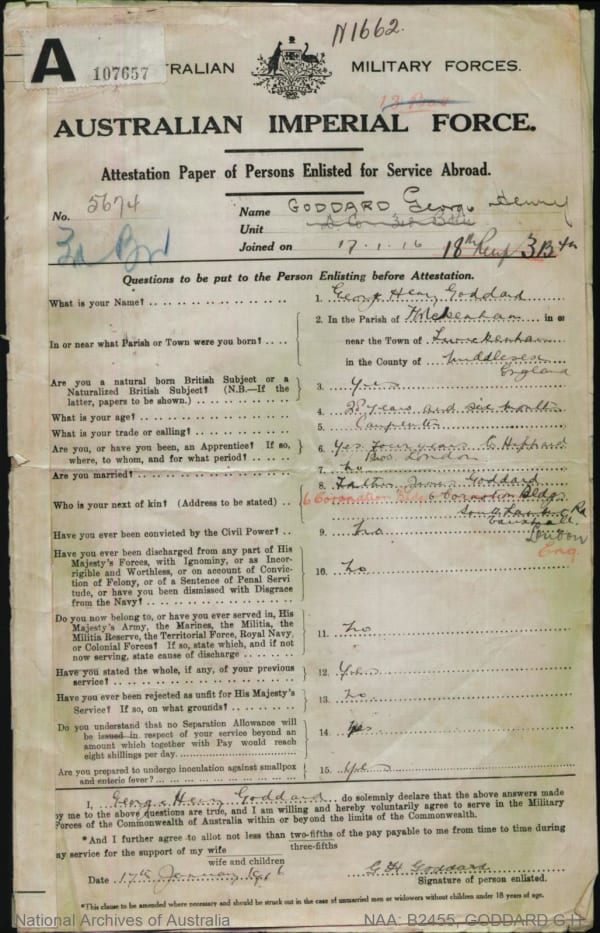 N1662.
A 107657
TRALIAN MILITARY FORCES.
AUSTRALIAN IMPERIAL FORCE.
Attestation Paper of Persons Enlisted for Service Abroad.
No. 5674
Name GODDARD George Henry
Unit
Joined on 17.1.16 18th Reinf 3Btn
Questions to be put to the Person Enlisting before Attestation.
What is your Name? 1. George Henry Goddard
In or near what Parish or Town were you born? 2. In the Parish of Twickenham in or
near the Town of Twickenham
in the County of Middlesex
England
Are you a natural born British Subject or a
Naturalized British Subject? (N.B.—If the
latter, papers to be shown.) 3. Yes
What is your age? 4. years and six months
What is your trade or calling? 5. Carpenter
Are you, or have you been, an Apprentice? If so,
where, to whom, and for what period? 6. Yes four years
Bros London
Are you married? 7. No
Who is your next of kin? (Address to be stated) 8. Father James Goddard
6 Coronation Bldgs 6 Coronation Bldgs
South Lambeth Rd
Vauxhall
London
Eng.
Have you ever been convicted by the Civil Power? 9. No
Have you ever been discharged from any part of His
Majesty's Forces, with Ignominy, or as Incor-
rigible and Worthless, or on account of Convic-
tion of Felony, or of a Sentence of Penal Servi
tude, or have you been dismissed with Disgrace
from the Navy? 10. No
Do you now belong to, or have you ever served in, His
Majesty's Army, the Marines, the Militia, the
Militia Reserve, the Territorial Force, Royal Navy,
or Colonial Forces? If so, state which, and if not
now serving, state cause of discharge 11. No
Have you stated the whole, if any, of your previous
service? 12. Yes
Have you ever been rejected as unfit for His Majesty's
Service? If so, on what grounds? 13. No
Do you understand that no Separation Allowance will
be issued in respect of your service beyond an
amount which together with Pay would reach
eight shillings per day. 14. Yes
Are you prepared to undergo inoculation against smallpox
and enteric fever? 15. Yes
I, George Henry Goddard do solemnly declare that the above answers made
by me to the above questions are true, and I am willing and hereby voluntarily agree to serve in the Military
Forces of the Commonwealth of Australia within or beyond the limits of the Commonwealth.
*And I further agree to allot not less than two-fifths of the pay payable to me from time to time during
three-fifths
my service for the support of my wife
wife and children
G H Goddard
Date 17th January 1916 Signature of person enlisted.
*This clause to be amended where necessary and should be struck out in the case of unmarried men or widowers without children under 18 years of age.
National Archives of Australia NAA: B2455, GODDARD G H